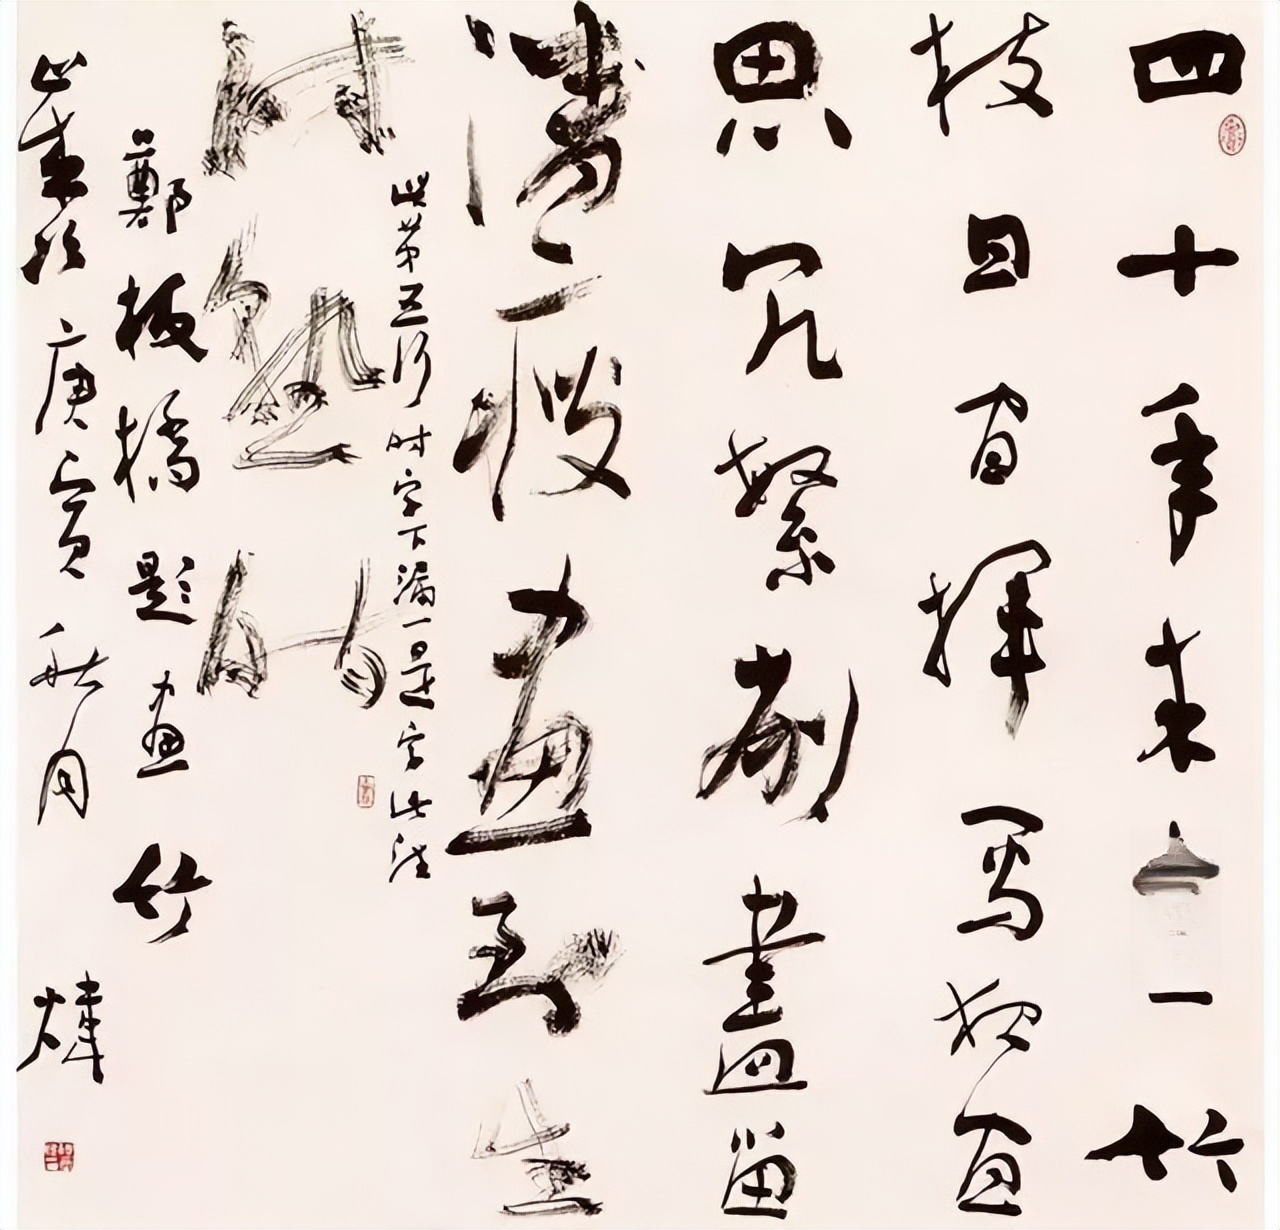 四十年来竹
枝日间挥写夜间
思冗繁削盡留
清瘦画到生
此第五行时字下漏一是字此注
时熟时
鄭板橋题画竹
庚寅秋月 煒